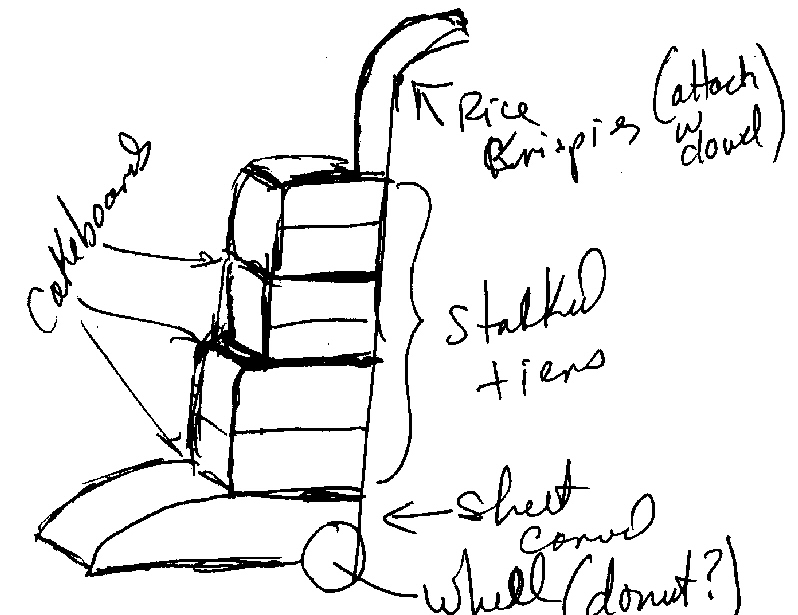 Rice (attach
Krispies w
dowel)
Cakeboards
Stacked
tiers
Sheet
carved
Wheel (donut?)